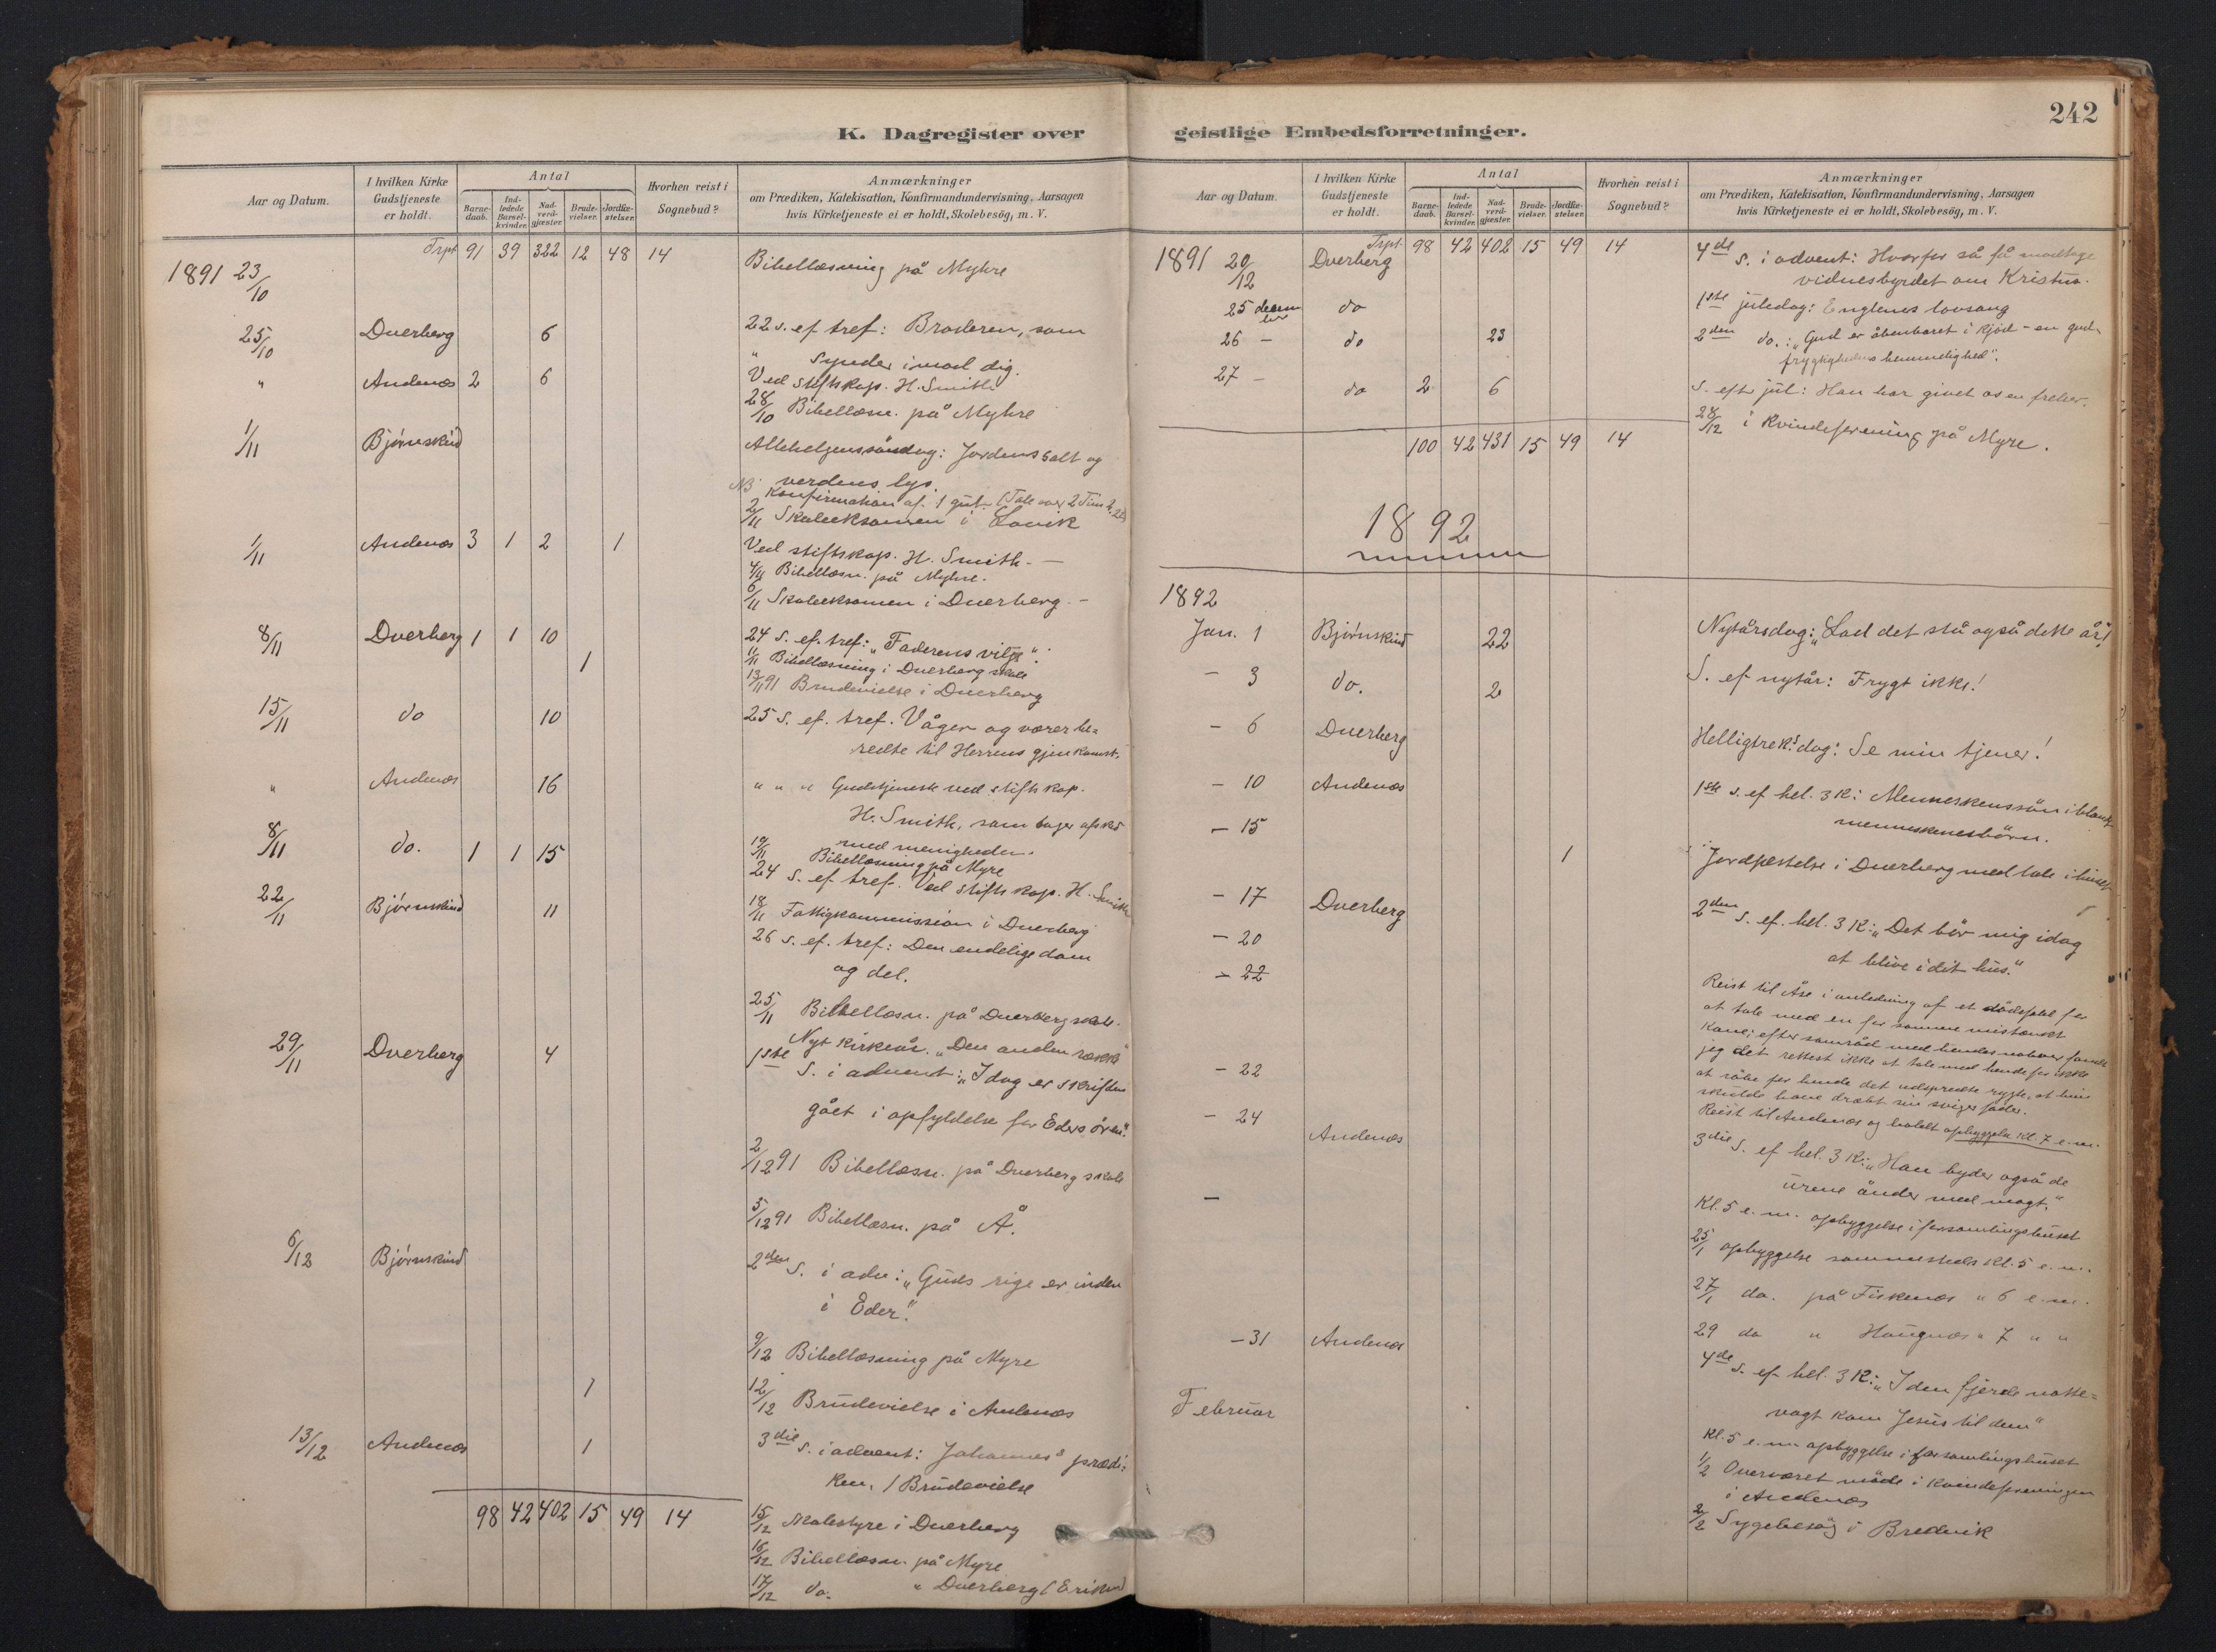 242
K. Dagregister over geistlige Embedsforretninger.
Aar og Datum.
I hvilken Kirke Gudstjeneste er holdt.
Antal
Barne-daab.
Ind-ledede Barsel-kvinder.
Nad-verd-gjæster.
Brude-vielser.
Jordfæ-stelser.
Hvorhen reist i Sognebud?
Anmærkninger
om Prædiken, Katekisation, Konfirmandundervisning, Aarsagen
hvis Kirketjeneste ei er holdt, Skolebesög, m. V.
Trpt 91 39 322 12 48 14
1891 23/10 Bibellæsning på Myhre
25/10 Dverberg 6 22 s. ef tref: Broderen, som
synder imod dig.
" Andenæs 2 6 Ved stiftskap. H. Smith
28/10 Bibellæsn. på Myhre
1/11 Bjørnskind Allehelgenssöndag: Jordens salt og
verdens lys.
Konfirmation af 1 gut. (Tale over 2 Tim 2.
2/11 Skoleeksamen i
1/11 Andenæs 3 1 2 1 Ved stiftskap. H. Smith. —
4/11 Bibellæsn. på Myhre.
6/11 Skoleeksamen i Dverberg. —
8/11 Dverberg 1 1 10 24 s. ef. tref: "Faderens vilje".
11/11 Bibellæsning i Dverberg skole
1 13/11 91 Brudevielse i Dverberg
15/11 do 10 25 s. ef. tref. Våger og værer be-
redte til Herrens gjenkomst.
" Andenæs 16 " " " Gudstjeneste ved stiftskap.
H. Smith, som tager afsked
med menigheden.
19/11 Bibellæsning på Myre
8/11 do. 1 1 15 24 s. ef tref. Ved stiftskap. H. Smith
18/11 Fattigkommission i Dverberg
22/11 Bjørnskind 11 26 s. ef. tref: Den endelige dom
og del.
25/11 Bibellæsn. på Dverberg skole.
Nyt kirkeår. "Den anden række"
29/11 Dverberg 4 1ste S. i advent: "Idag er skriften
gået i opfyldelse for Eders ören".
2/12 91 Bibellæsn. på Dverberg skole
5/12 91 Bibellæsn. på Å.
6/12 Bjørnskind 2den S. i adv: "Guds rige er inden
i Eder".
9/12 Bibellæsning på Myre
1 12/12 Brudevielse i Andenæs
13/12 Andenæs 1 3die S. i advent: Johannes's prædi-
ken. 1 Brudevielse
98 42 402 15 49 14
15/12 i Dverberg
16/12 Bibellæsn. på Myre
17/12 do. " Dverberg
Aar og Datum.
I hvilken Kirke Gudstjeneste er holdt.
Antal
Barne-daab.
Ind-ledede Barsel-kvinder.
Nad-verd-gjæster.
Brude-vielser.
Jordfæ-stelser.
Hvorhen reist i Sognebud?
Anmærkninger
om Prædiken, Katekisation, Konfirmandundervisning, Aarsagen
hvis Kirketjeneste ei er holdt, Skolebesög, m. V.
Trpt 98 42 402 15 49 14
1891 20/12 Dverberg 4de S. i advent: Hvorfor så få modtage
vidnesbyrdet om Kristus.
25 decem ber do 1ste juledag: Englenes lovsang
26 — do 23 2den do.: "Gud er åbenbaret i kjød - en gud-
frygtighedens hemmelighed".
27 — do 2 6 S. efter jul: Han har givet os en frelser.
28/12 i Kvindeforening på Myre.
100 42 431 15 49 14
1892
1892
Jan. 1 Bjørnskind 22 Nytårsdag: "Lad det stå også dette år"!
— 3 do. 2 S. ef nytår: Frygt ikke!
— 6 Dverberg Helligtrek. dag: Se min tjener!
— 10 Andenæs 1ste s. ef hel. 3 K: Menneskenssön iblandt
menneskenesbörn.
— 15 1 Jordfæstelse i Dverberg med tale i huset
— 17 Dverberg 2den S. ef. hel. 3 K: "Det bör mig idag
at blive i dit hus."
— 20 Reist til Åse i anledning af et dödsfald for
— 22 at tale med en for samme mistænkt
Kone; efter samråd med hendes naboer fandt
jeg det rettest ikke at tale med hende for ikke
at röbe for hende det udspredte rygte, at hun
skulde have dræbt sin svigerfader.
— 22 Reist til Andenæs og holdt opbyggelse Kl. 7 e.m.
— 24 Andenæs 3die S. ef hel. 3 K: "Han byder også de
urene ånder med magt."
— Kl. 5 e.m. opbyggelse i forsamlingshuset
25/1 opbyggelse sammesteds Kl. 5 e.m.
27/1 do. på Fiskenæs " 6 e.m.
29 do " Haugnæs " 7 " "
— 31 Andenæs 4de S. ef hel. 3 K: "I den fjerde natte-
vagt kom Jesus til dem"
Februar Kl. 5 e.m. opbyggelse i forsamlingshuset
1/2 Overværet möde i Kvindeforeningen
i Andenæs
2/2 Sygebesög i Bredvik